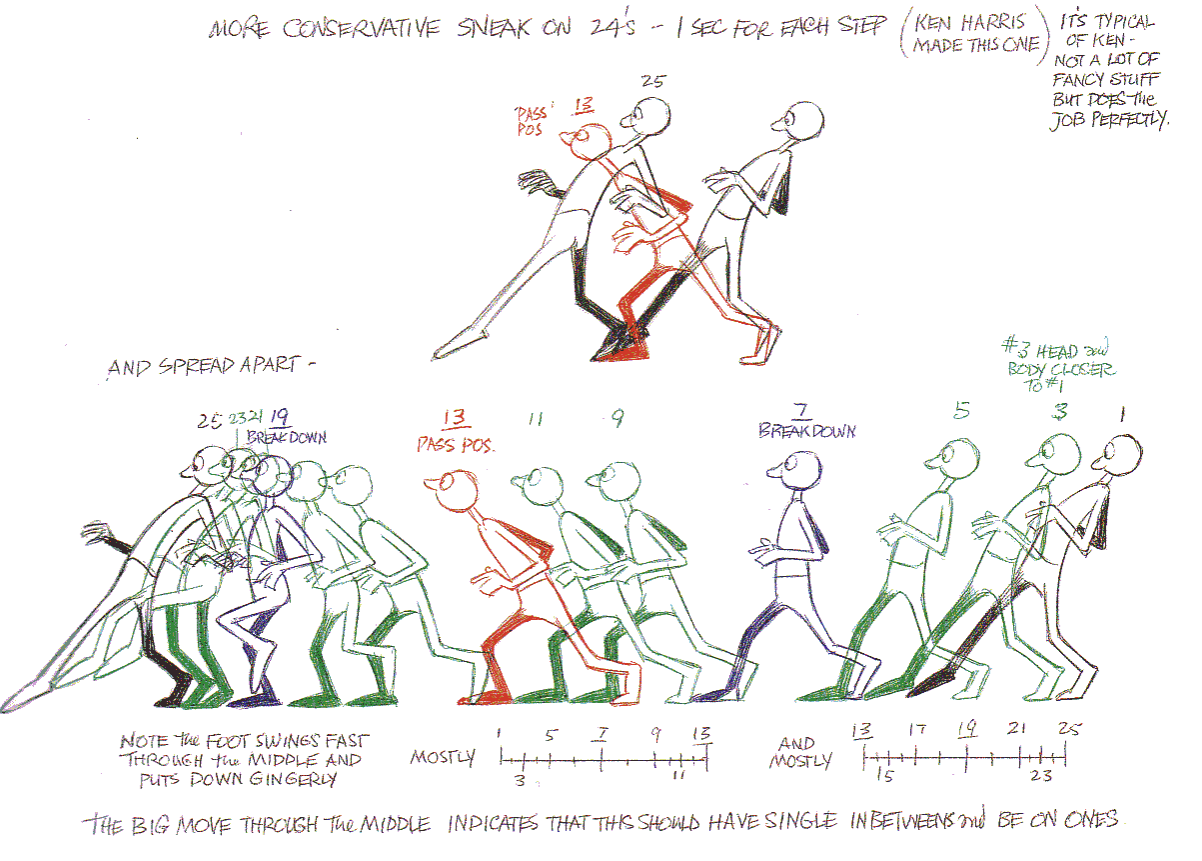 MORE CONSERVATIVE SNEAK ON 24's – 1 SEC FOR EACH STEP
(KEN HARRIS
MADE THIS ONE)
IT'S TYPICAL
OF KEN -
NOT A LOT OF
FANCY STUFF
BUT DOES the
JOB PERFECTLY.
25
'PASS'
POS
13
AND SPREAD APART -
#3 HEAD and
BODY CLOSER
TO #1
25 23 21 19
BREAKDOWN
13
PASS POS.
11
9
7
BREAKDOWN
5
3
1
NOTE the FOOT SWINGS FAST
THROUGH the MIDDLE AND
PUTS DOWN GINGERLY
MOSTLY
1 5 7 9 13
3 11
AND
MOSTLY
13 17 19 21 25
15 23
THE BIG MOVE THROUGH the MIDDLE INDICATES THAT THIS SHOULD HAVE SINGLE INBETWEENS and BE ON ONES